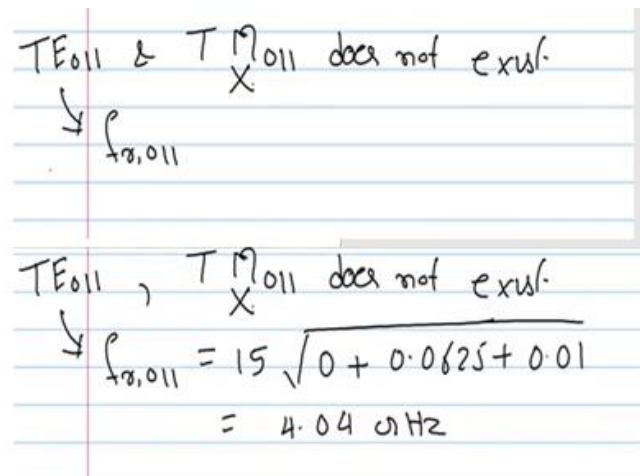 TE011 & TM011 does not exist.
X
↓ fr,011
TE011 , TM011 does not exist.
X
↓ fr,011 = 15 √0 + 0.0625 + 0.01
= 4.04 GHz